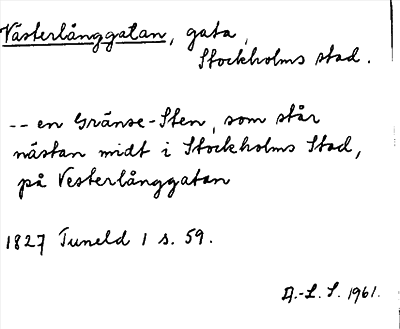 Västerlånggatan, gata,
Stockholms stad.
-- en Gränse-Sten, som står
nästan midt i Stockholms Stad,
på Vesterlånggatan
1827 Tuneld 1 s. 59.
A.-L. S. 1961.